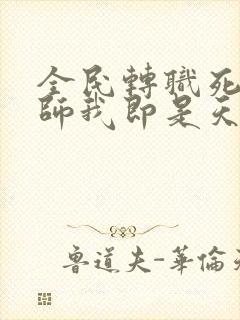 全民轉職死
師我即是天
魯道夫-華倫